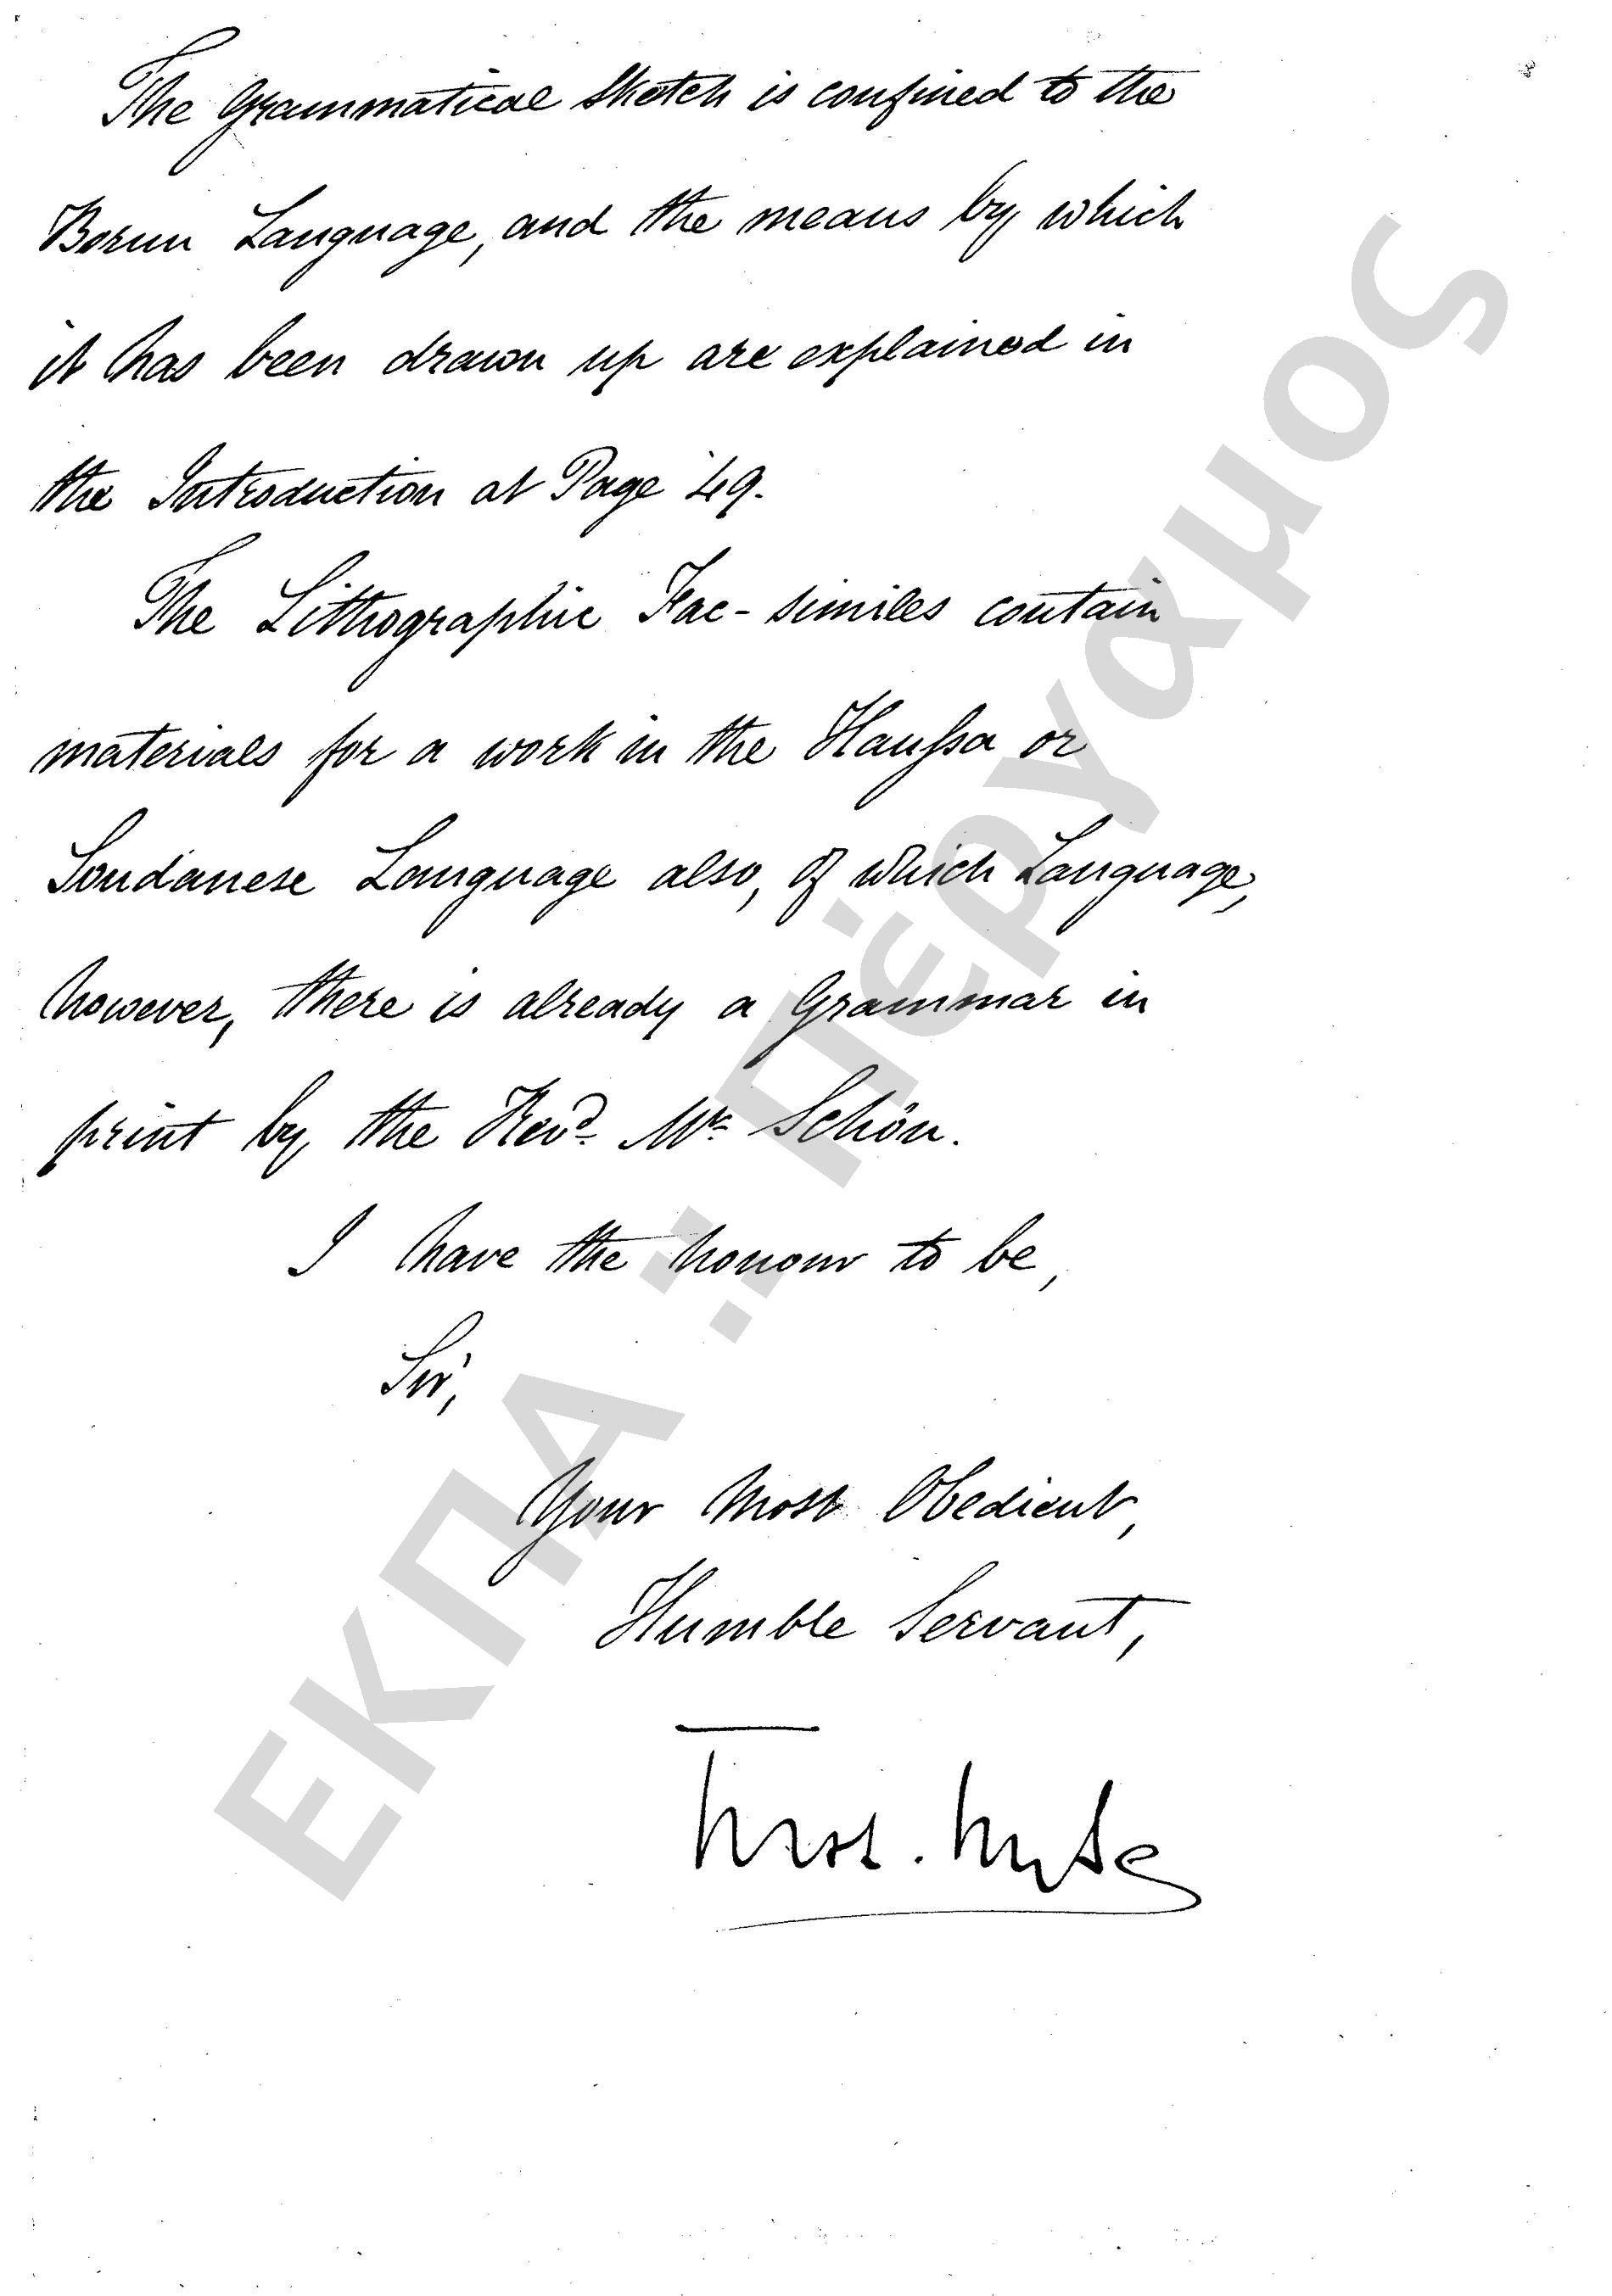 The Grammatical Sketch is confined to the
Bornu Language, and the means by which
it has been drawn up are explained in
the Introduction at Page 49.
The Lithographic Fac-similes contain
materials for a work in the Haussa or
Soudanese Language also, of which Language,
however, there is already a Grammar in
print by the Revd. Mr. Schön.
I have the honour to be,
Sir,
Your Most Obedient,
Humble Servant,
ΕΚΠΑ : Πέργαμος